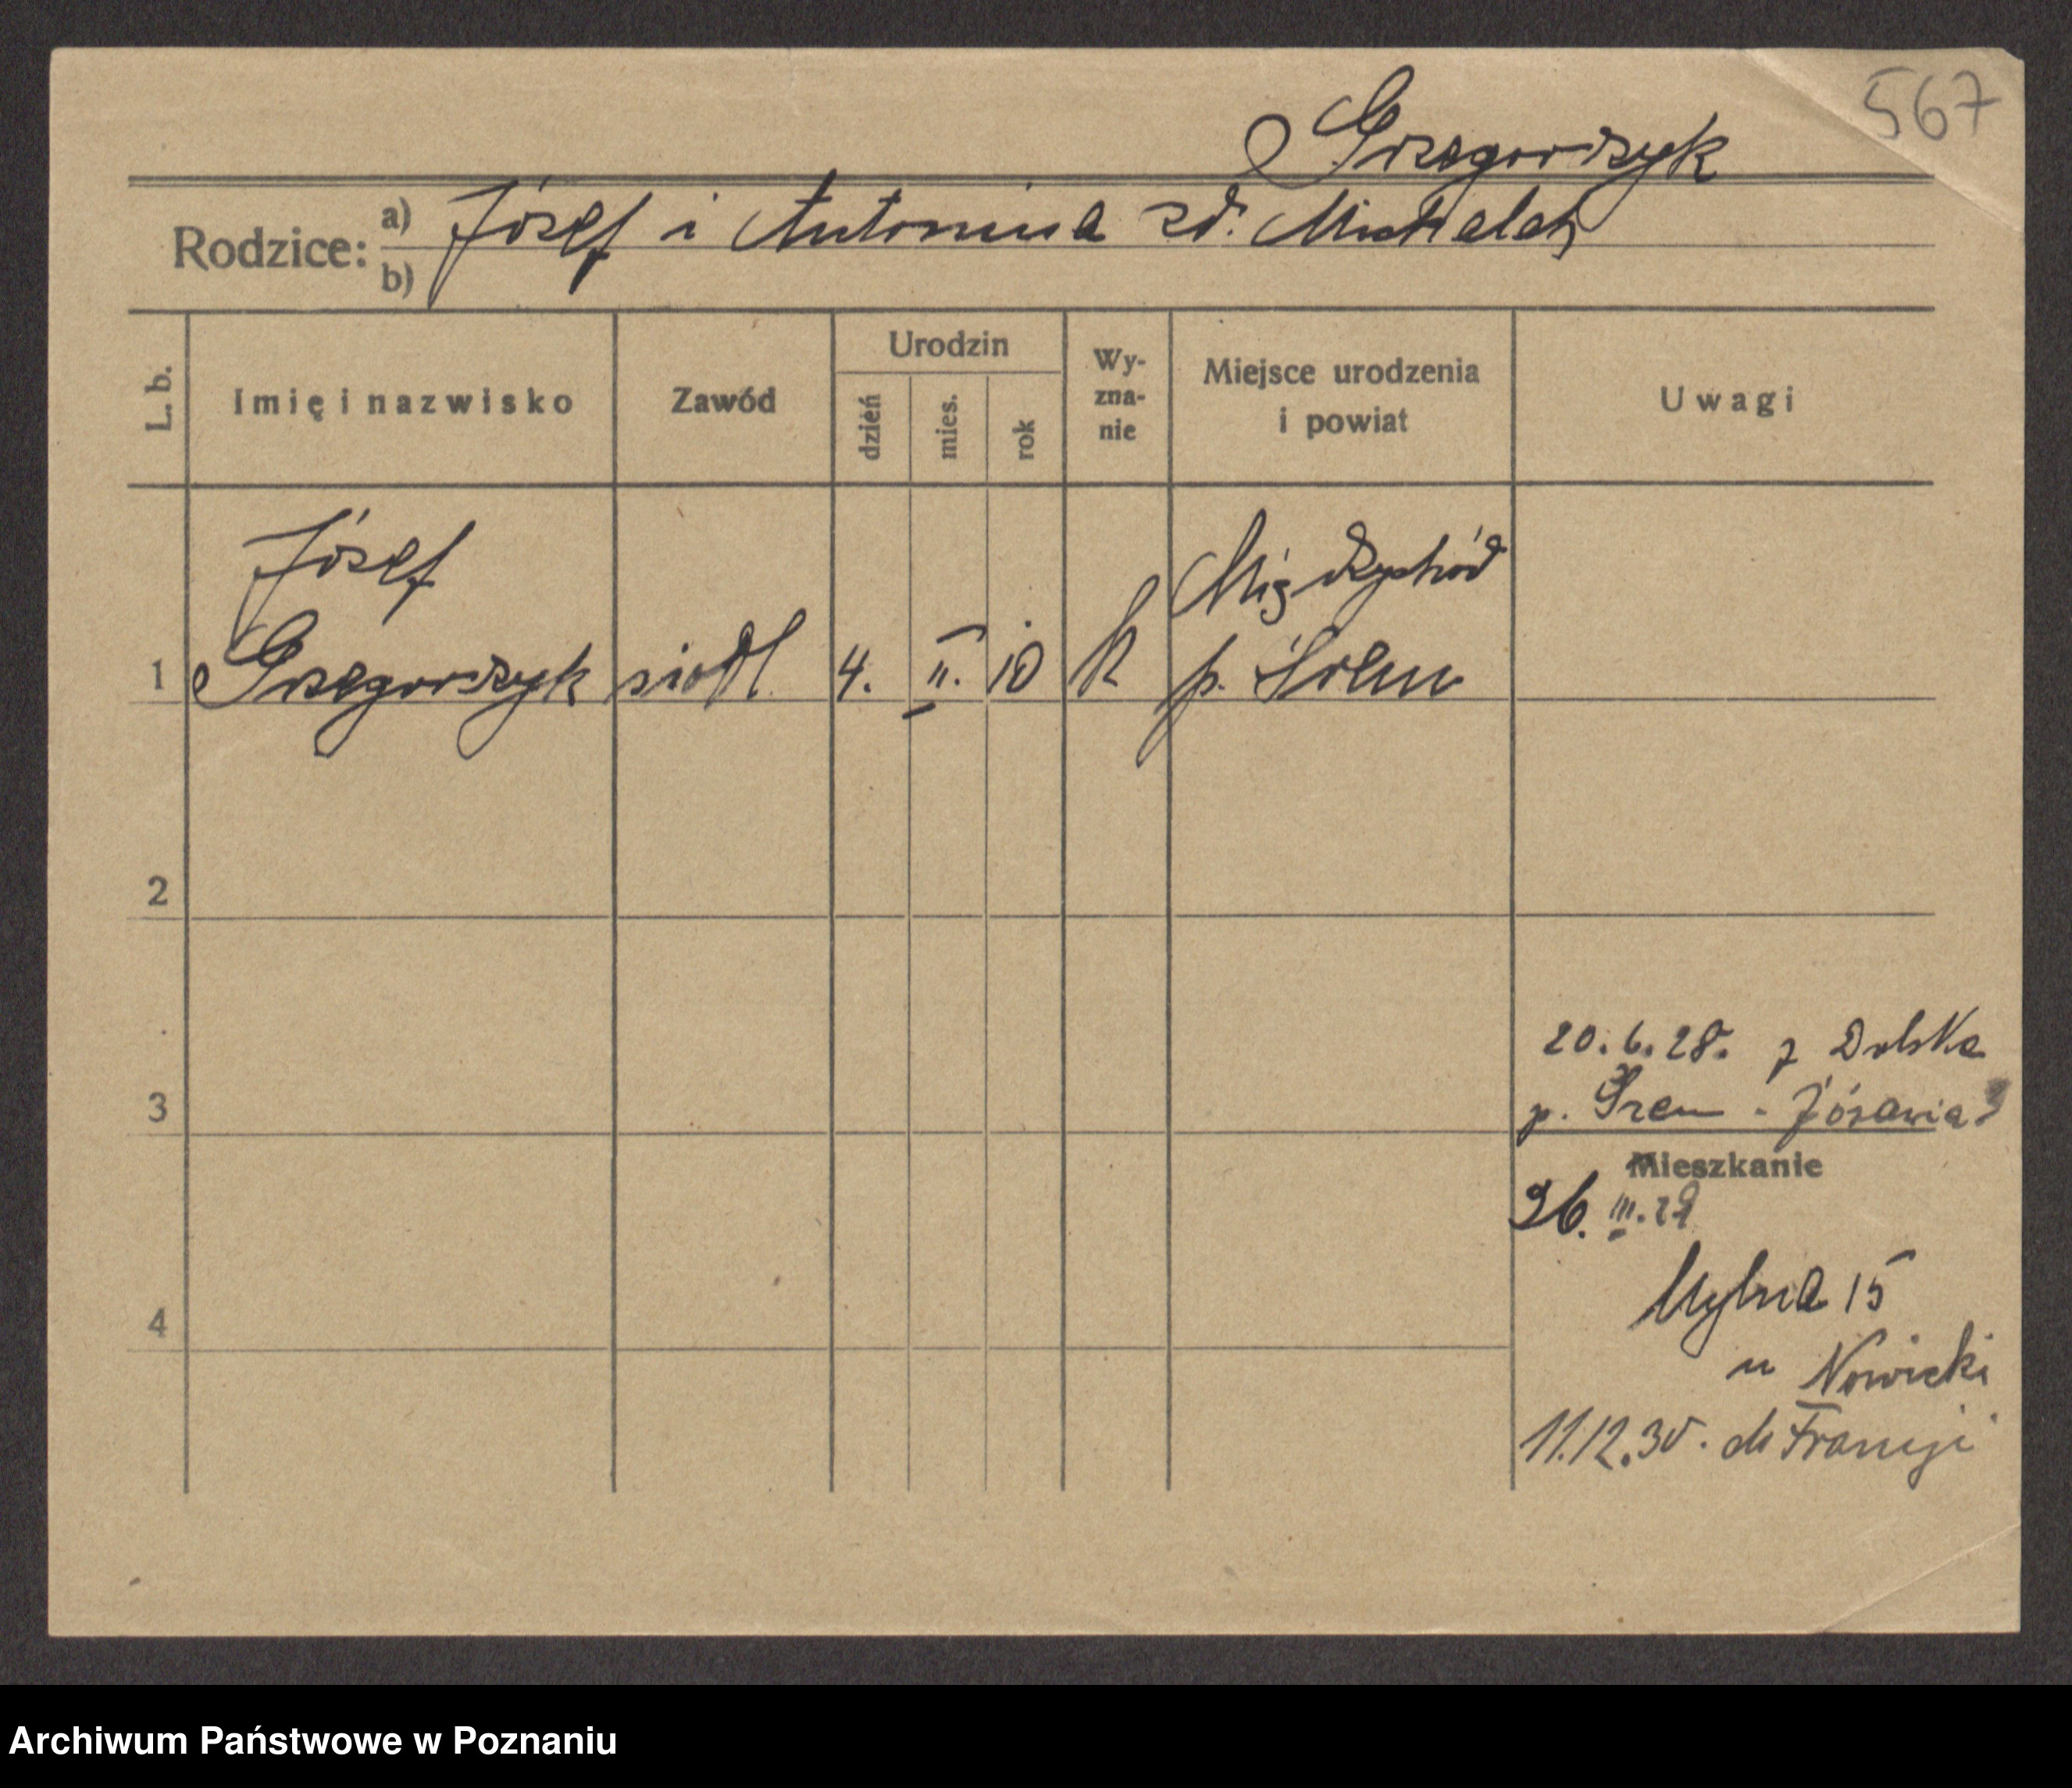 567
Grzegorczyk
Rodzice: a) Józef i Antonina zd. Michalak
b)
L. b. Imię i nazwisko Zawód Urodzin dzień mies. rok Wy-zna-nie Miejsce urodzenia i powiat Uwagi
Józef Międzychód
1 Grzegorczyk siodl. 4. II. 10 k p. Śrem
2
20.6.28. z Dolska
3 p. Śrem -
Mieszkanie
26. III. 29
4 Młyna 15
u Nowicki
11.12.30. do Francji
Archiwum Państwowe w Poznaniu